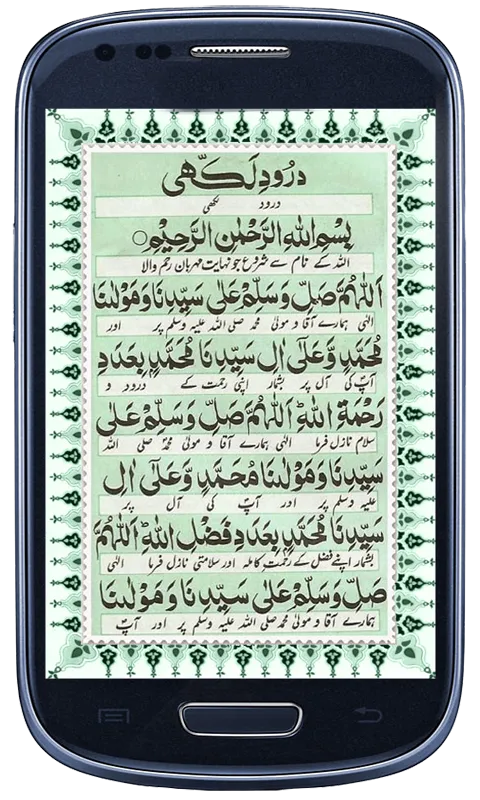 درودِ لَکّھی
درود لکھی
بِسْمِ اللهِ الرَّحْمٰنِ الرَّحِيْمِ
اللہ کے نام سے شروع جو نہایت مہربان رحم والا
اَللّٰهُمَّ صَلِّ وَسَلِّمْ عَلٰى سَيِّدِنَا وَمَوْلٰنَا
الٰہی ہمارے آقا و مولیٰ محمد صلی اللہ علیہ وسلم پر اور
مُحَمَّدٍ وَّعَلٰٓى اٰلِ سَيِّدِنَا مُحَمَّدٍ بِعَدَدِ
آپؐ کی آل پر بشمار اپنی رحمت کے درود و
رَحْمَةِ اللهِ اَللّٰهُمَّ صَلِّ وَسَلِّمْ عَلٰى
سلام نازل فرما الٰہی ہمارے آقا و مولیٰ محمدؐ صلی اللہ
سَيِّدِنَا وَمَوْلٰنَا مُحَمَّدٍ وَّعَلٰٓى اٰلِ
علیہ وسلم پر اور آپؐ کی آل پر
سَيِّدِنَا مُحَمَّدٍ بِعَدَدِ فَضْلِ اللهِ ط اَللّٰهُمَّ
بشمار اپنے فضل کے رحمتِ کاملہ اور سلامتی نازل فرما الٰہی
صَلِّ وَسَلِّمْ عَلٰى سَيِّدِنَا وَمَوْلٰنَا
ہمارے آقا و مولیٰ محمد صلی اللہ علیہ وسلم پر اور آپؐ